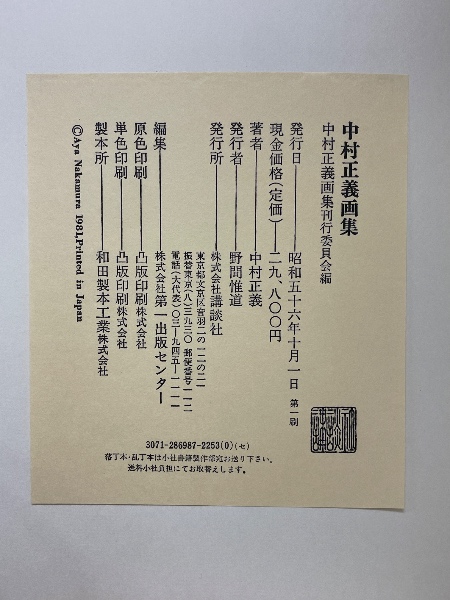 中村正義画集
中村正義画集刊行委員会編
発行日――昭和五十六年十月一日 第一刷
現金価格(定価)――二九、八〇〇円
著者――中村正義
発行者――野間惟道
発行所――株式会社講談社
東京都文京区音羽二の一二の二一
振替東京(八)三九三〇 郵便番号一一二
電話(大代表)〇三―九四五―一一一一
編集――株式会社第一出版センター
原色印刷――凸版印刷株式会社
単色印刷――凸版印刷株式会社
製本所――和田製本工業株式会社
©Aya Nakamura 1981,Printed in Japan
3071-286987-2253(0)(セ)
落丁本・乱丁本は小社書籍製作部宛お送り下さい。
送料小社負担にてお取替えします。